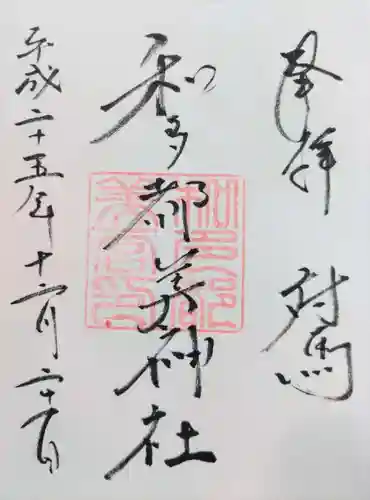 奉拝 対馬
和多都美神社
平成二十五年十二月二十日